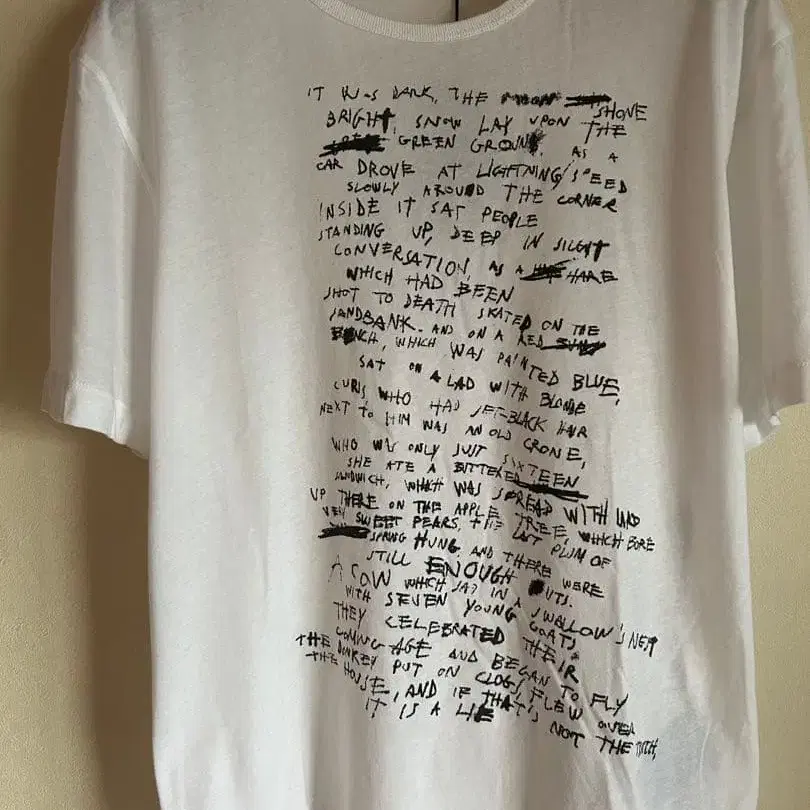 IT WAS DARK, THE MOON SHONE
BRIGHT, SNOW LAY UPON THE
GREEN GROUND. AS A
CAR DROVE AT LIGHTNING SPEED
SLOWLY AROUND THE CORNER
INSIDE IT SAT PEOPLE
STANDING UP, DEEP IN SILENT
CONVERSATION, AS A HARE
WHICH HAD BEEN
SHOT TO DEATH SKATED ON THE
SANDBANK. AND ON A RED
BENCH, WHICH WAS PAINTED BLUE,
SAT ON A LAD WITH BLONDE
CURLS WHO HAD JET-BLACK HAIR
NEXT TO HIM WAS AN OLD CRONE,
WHO WAS ONLY JUST SIXTEEN
SHE ATE A BUTTERED
SANDWICH, WHICH WAS SPREAD WITH LARD
UP THERE ON THE APPLE TREE, WHICH BORE
VERY SWEET PEARS, THE LAST PLUM OF
SPRING HUNG, AND THERE WERE
STILL ENOUGH NUTS.
A COW WHICH SAT IN A SWALLOW'S NEST
WITH SEVEN YOUNG GOATS
THEY CELEBRATED THEIR
COMING AGE AND BEGAN TO FLY
THE DONKEY PUT ON CLOGS, FLEW OVER
THE HOUSE, AND IF THAT'S NOT THE TRUTH,
IT IS A LIE